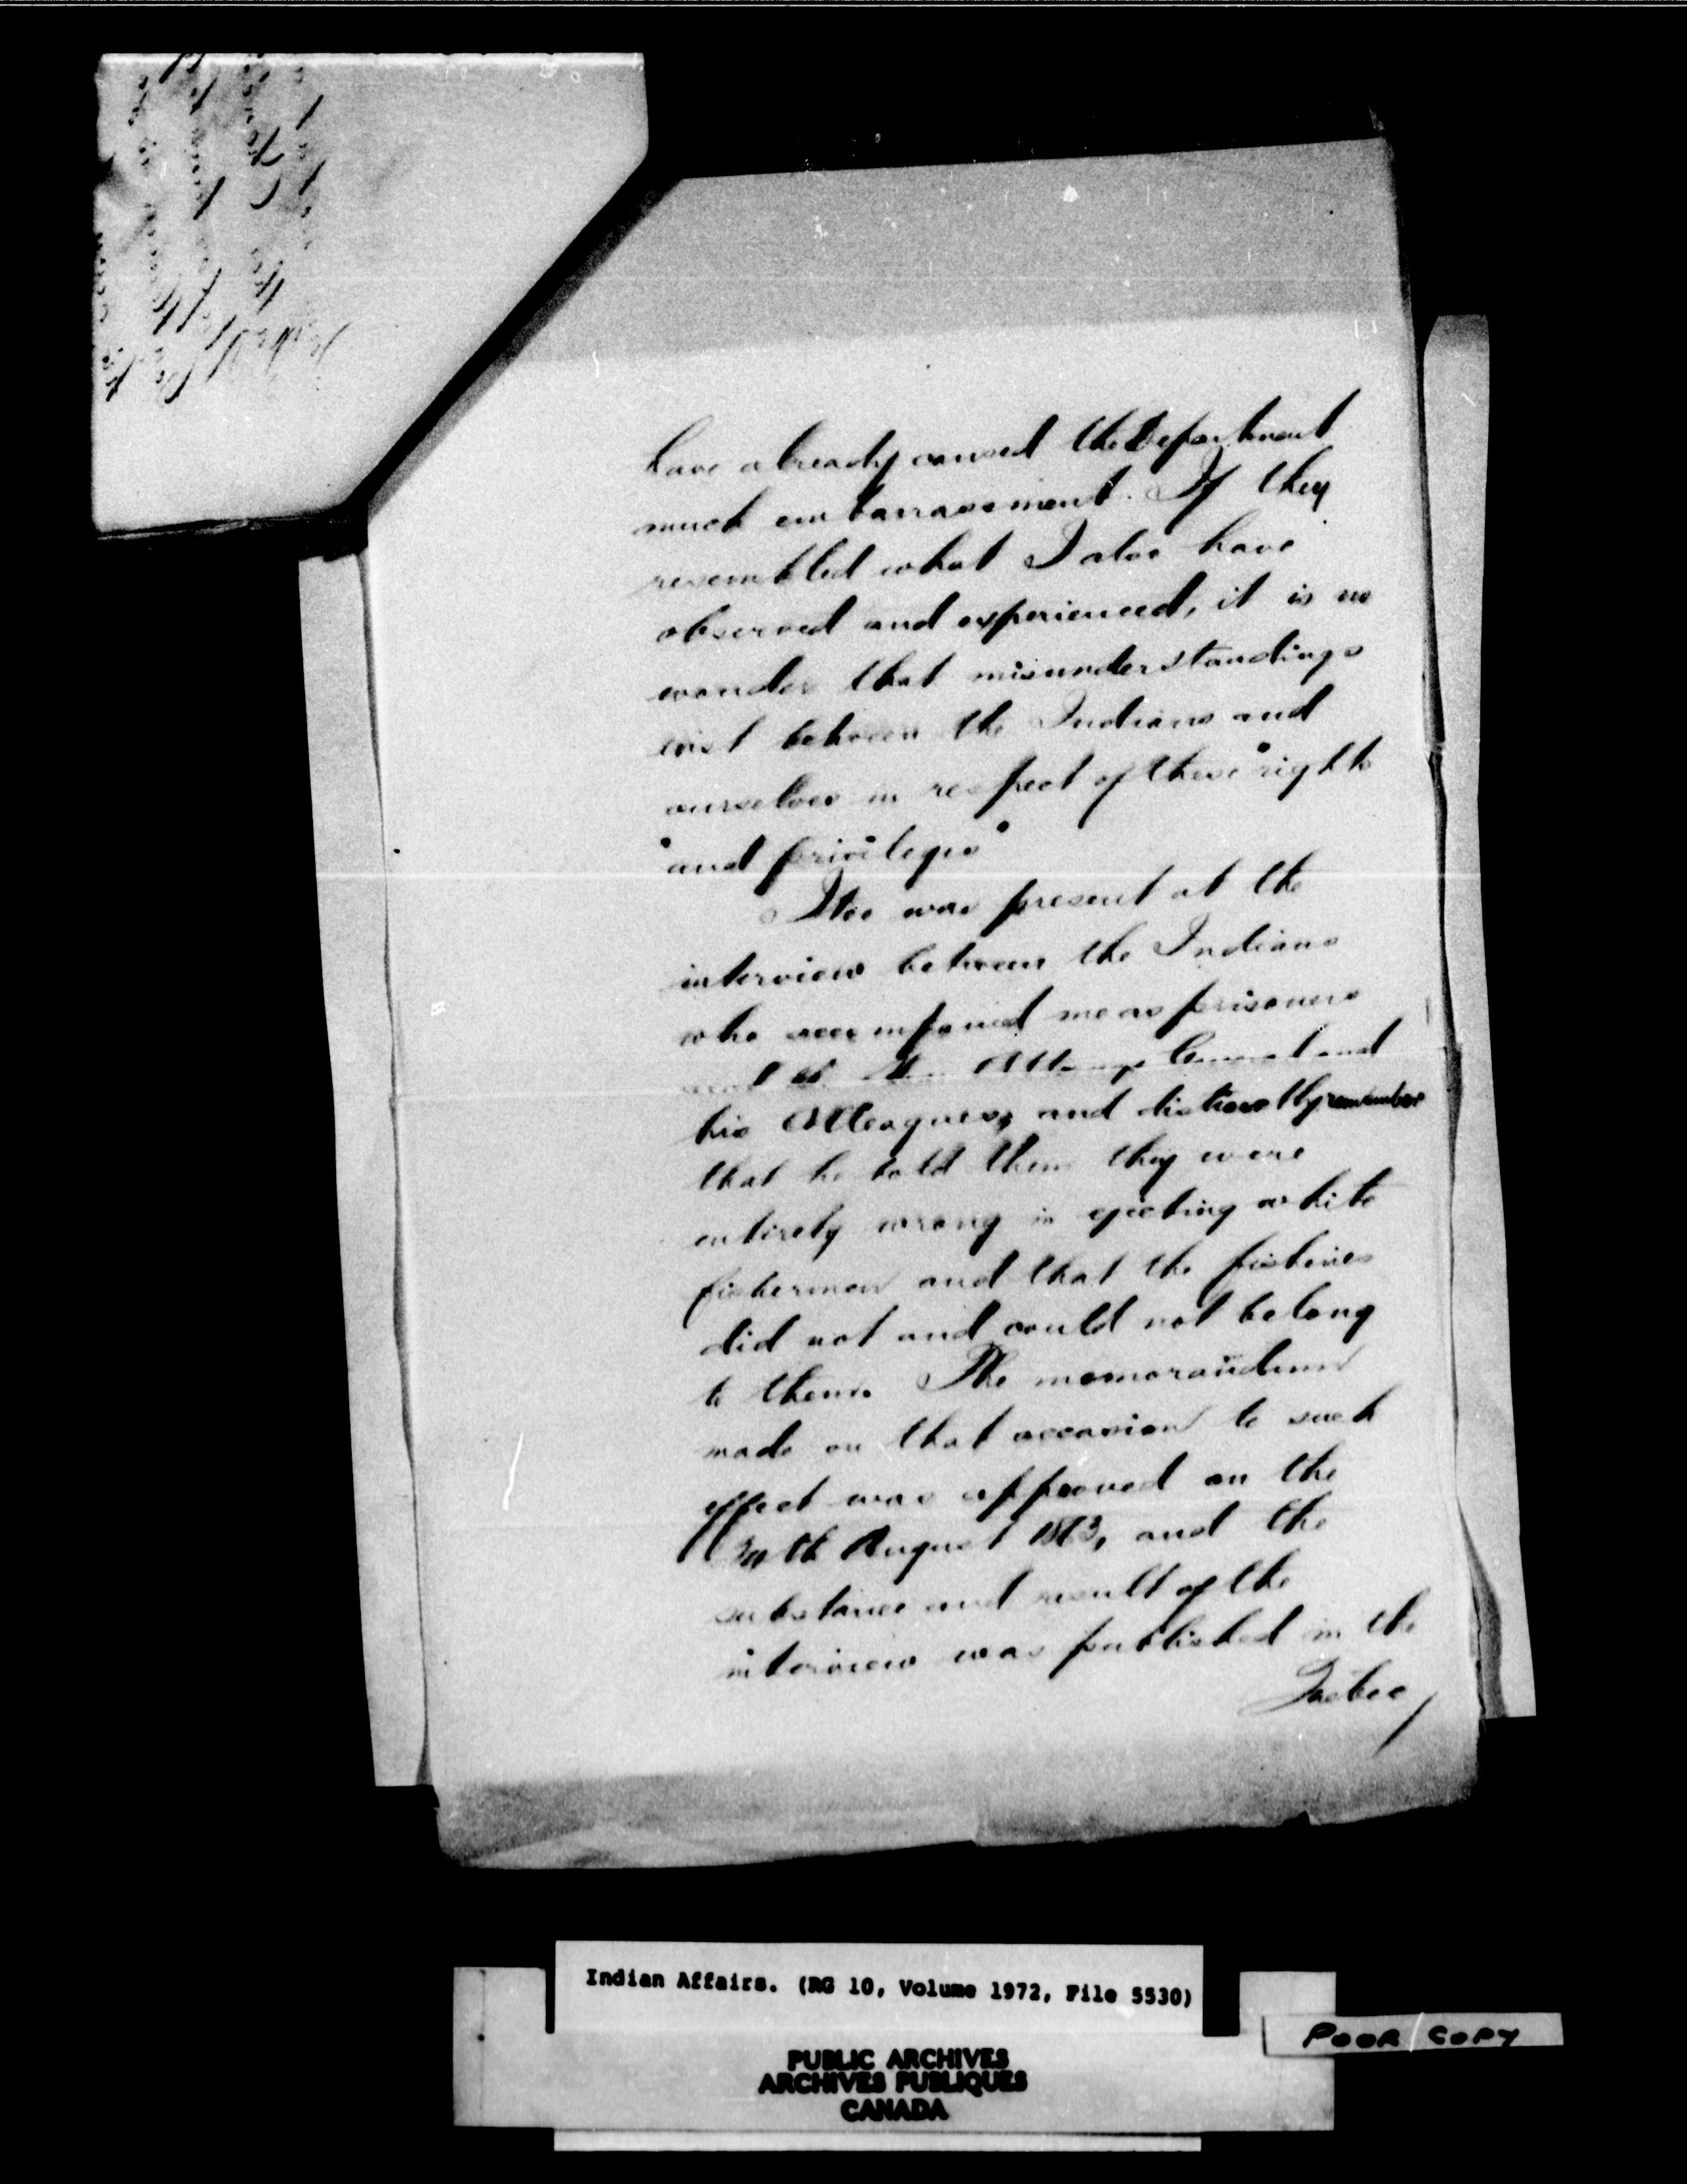 have already caused the Department
much embarrassment. If they
resembled what I also have
observed and experienced, it is no
wonder that misunderstandings
exist between the Indians and
ourselves in respect of these "rights
"and privileges"
I too was present at the
interview between the Indians
who accompanied me as prisoners
and the Attorney General and
his Colleagues, and distinctly remember
that he told them they were
entirely wrong in ejecting white
fishermen and that the fisheries
did not and could not belong
to them. The memorandum
made on that occasion to such
effect was approved on the
August 1863, and the
substance and result of the
interview was published in the
Quebec
Indian Affairs. (RG 10, Volume 1972, File 5530)
PUBLIC ARCHIVES
ARCHIVES PUBLIQUES
CANADA
POOR COPY